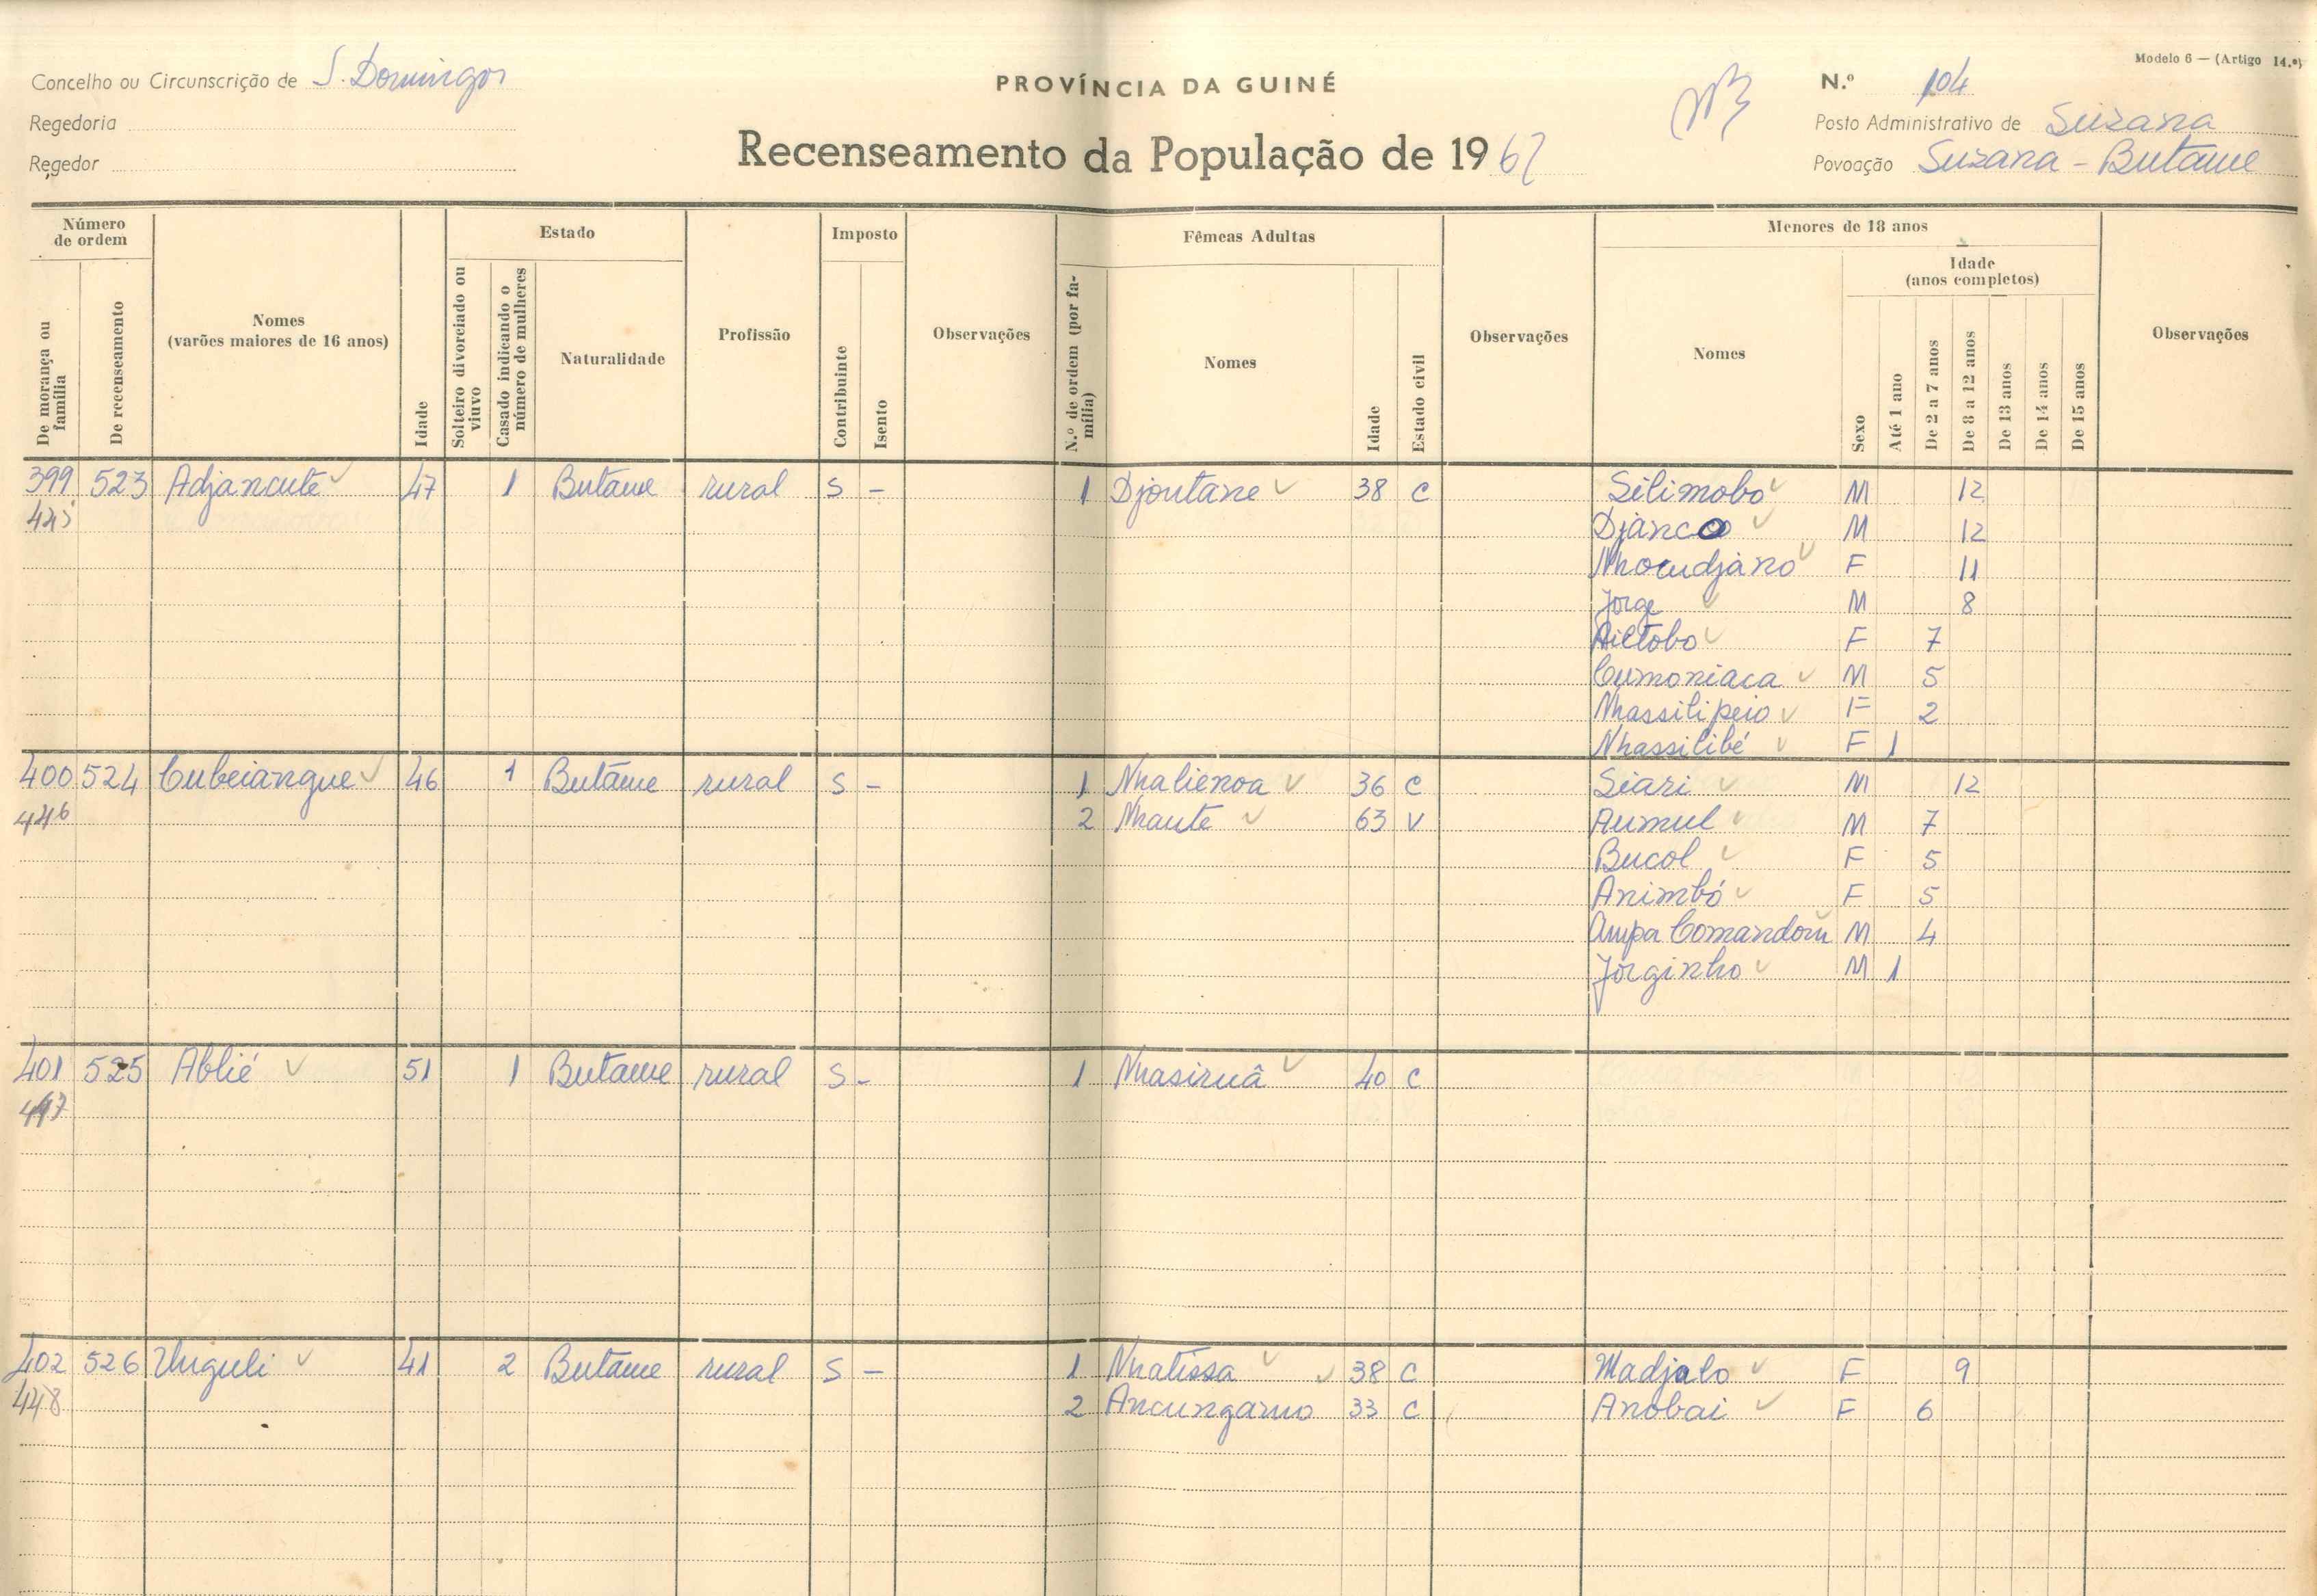 Modelo 6 — (Artigo 14.º)
Concelho ou Circunscrição de S. Domingos
PROVÍNCIA DA GUINÉ
N.º 104
Regedoria
Posto Administrativo de Suzana
Regedor
Recenseamento da População de 1962
Povoação Suzana - Butame
Número de ordem
Estado
Imposto
Fêmeas Adultas
Menores de 18 anos
Idade
(anos completos)
De morança ou família
De recenseamento
Nomes
(varões maiores de 16 anos)
Idade
Solteiro divorciado ou viuvo
Casado indicando o número de mulheres
Naturalidade
Profissão
Contribuinte
Isento
Observações
N.º de ordem (por família)
Nomes
Idade
Estado civil
Observações
Nomes
Sexo
Até 1 ano
De 2 a 7 anos
De 8 a 12 anos
De 13 anos
De 14 anos
De 15 anos
Observações
399 523 Adjancute 47 1 Butame rural S - 1 Djontane 38 C Silimobo M 12
445 Djanco M 12
Nhoudjano F 11
Jorge M 8
Aietobo F 7
Cumoniaca M 5
Nhassilipeio F 2
Nhassilibé F 1
400 524 Cubeiangue 46 1 Butame rural S - 1 Nhalienoa 36 C Siari M 12
446 2 Nhaute 63 V Aumul M 7
Bucol F 5
Animbó F 5
Ampa Comandom M 4
Jorginho M 1
401 525 Ablié 51 1 Butame rural S - 1 Nhasiruâ 40 C
447
402 526 Unguli 41 2 Butame rural S - 1 Nhatissa 38 C Madjalo F 9
448 2 Ancungamo 33 C Anobai F 6